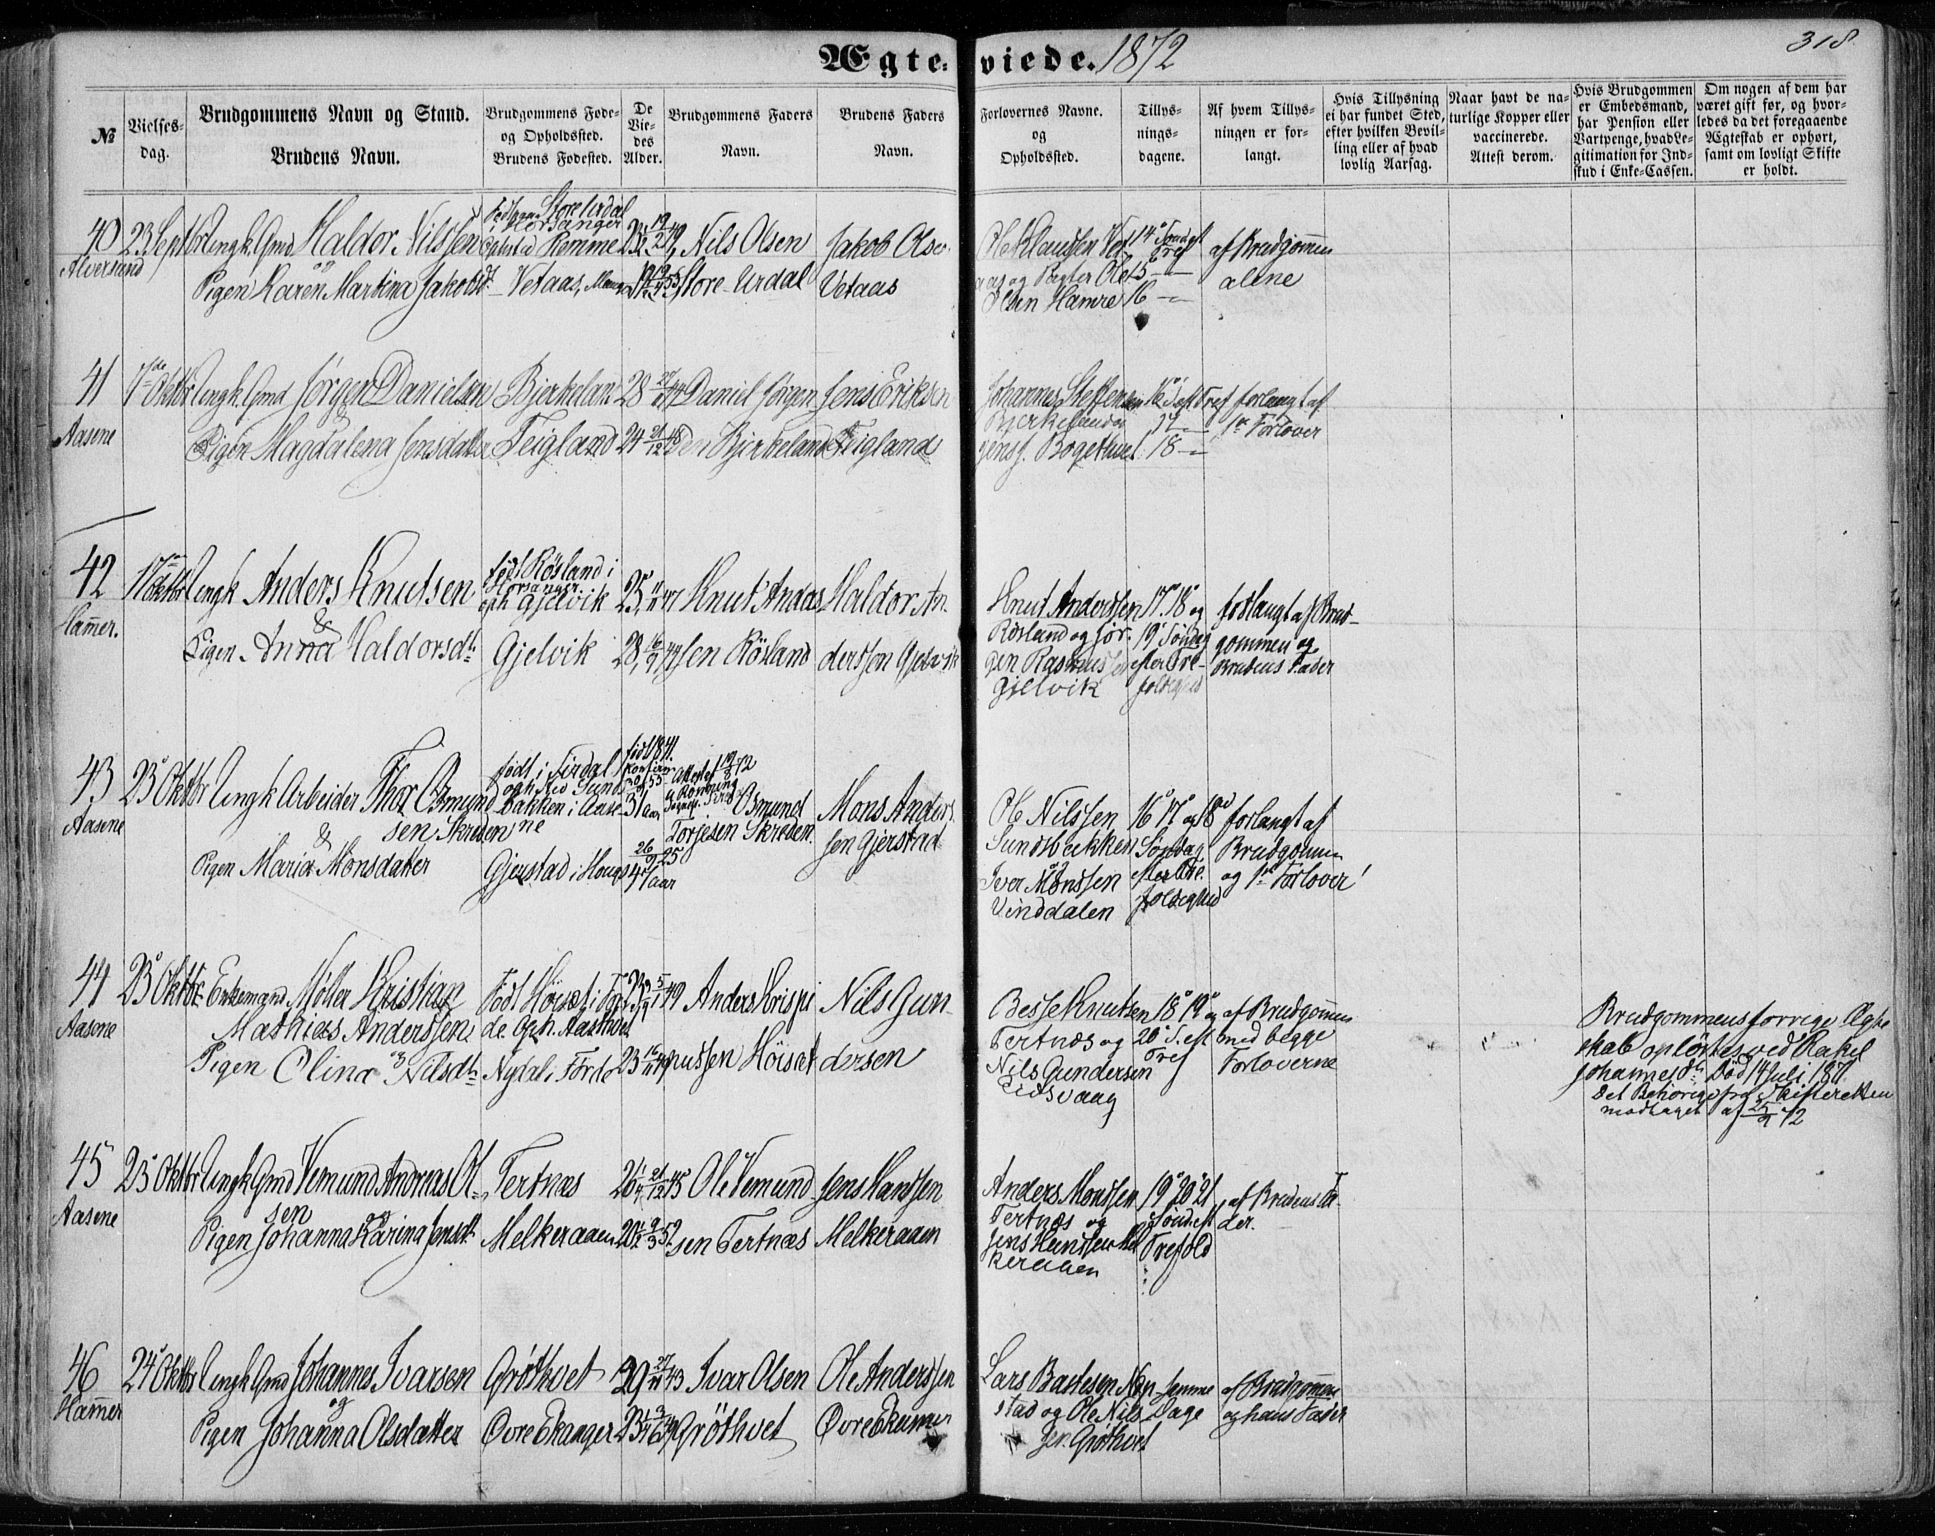 Ægte-viede. 1872
318
№
Vielses-
dag.
Brudgommens Navn og Stand.
Brudens Navn.
Brudgommens Føde-
og Opholdssted.
Brudens Fødested.
De
Vie-
des
Alder.
Brudgommens Faders
Navn.
Brudens Faders
Navn.
Forlovernes Navne.
og
Opholdssted.
Tillys-
nings-
dagene.
Af hvem Tillys-
ningen er for-
langt.
Hvis Tillysning
ei har fundet Sted,
efter hvilken Bevil-
ling eller af hvad
lovlig Aarsag.
Naar havt de na-
turlige Kopper eller
vaccinerede.
Attest derom.
Hvis Brudgommen
er Embedsmand,
har Pension eller
Vartpenge, hvad Le-
gitimation for Ind-
skud i Enke-Cassen.
Om nogen af dem har
været gift før, og hvor-
ledes da det foregaaende
Ægteskab er ophørt,
samt om lovligt Skifte
er holdt.
40
Alversund
23 Sept
Ungk. Gmd Haldor Nilssen
Pigen Karen Martina Jakobsd
Store Urdal
Hosanger
Hemme
Vetaas,
Nils Olsen
Store-Urdal
Jakob Olsen
Vetaas
Ole Klaussen Vet
aas og Ole
Olsen Hamre
14
15
16
af Brudgommen
alene
41
Aasene
1de Oktbr
Ungk. Gmd Jørgen Danielsen
Pigen Magdalena Jensdatter
Bjerkeland
Teigland
28 27/11 44
24 21/12 48
Daniel Jørgen
sen Bjerkeland
Jens Eriksen
Teigland
Johannes Steffensen
Bjerkeland og
Jens J. Bogethuet
16 S. eft Tref
17
18
forlangt af
1e Forlover
42
Hamer.
17 Oktbr
Ungk Anders Knutsen
&
Pigen Anna Haldorsdtr
født Røsland i
Hosanger
oph Gjelvik
Gjelvik
Knut Anders
sen Røsland
Haldor An-
derssen Gjelvik
Knut Anderssen
Røsland og Jør-
gen Rasmussen
Gjelvik
17 18 og
19 Søndag
efter Tre-
foldighed
forlangt af Brud-
gommen og
Brudens Fader
43
Aasene
23 Oktbr
Ungk Arbeider Thor Osmund
sen Skreden
&
Pigen Maria Monsdatter
født i Sirdal
oph ved Sunds
bakken i Aase-
ne
Gjerstad i Houg
født 1841.
31 aar
26/9 25
47 aar
Attest 19/8 72
Osmund
Torjesen Skreden
Mons Anders
sen Gjerstad
Ole Nilssen
Sundsbakken
Iver Monssen
Vinddalen
16 17 og 18
Søndag
efter Tre-
foldighed
forlangt af
Brudgommen
og 1e Forlover
44
Aasene
23 Oktbr
Enkemand Møller Kristian
Mathias Anderssen
Pigen Olina Nilsdtr
Født Høisæt i Før
de Oph. Aastvet
Nydal, Førde
Anders Krispi
nussen Høisæt
Nils Gun-
dersen
Besse Knutsen
Tertnæs og
Nils Gundersen
Eidsvaag
18 19 og
20 S. eft
Tref
af Brudgommen
med begge
Forloverne
Brudgommens forrige Ægte
skab opløstes ved Rakel
Johannesdtr Død 14 Juli 1871.
Det Behørige fra Skifteretten
modtaget af 25/9 72
45
Aasene
23 Oktbr
Ungk Gmd Vemund Andreas Ol-
sen
Pigen Johanna Karina Jensdtr
Tertnæs
Melkeraaen
26 21/12 45
20 9/3 52
Ole Vemund
sen Tertnæs
Jens Hanssen
Melkeraaen
Anders Monssen
Tertnæs og
Jens Hanssen Mel
keraaen
19 20 21
Sønd. eft
Trefold
af Brudens Fa-
der.
46
Hamer
24 Oktbr
Ungk Gmd Johannes Ivarsen
og
Pigen Johanna Olsdatter
Grøthvet
Øvre Ekanger
29 27/11 43
Ivar Olsen
Grøthvet
Ole Anderssen
Øvre Ekanger
Lars Bastesen
stad og Ole Nils
sen Grøthvet
samme
Dage
af Brudgommen
og hans Fader